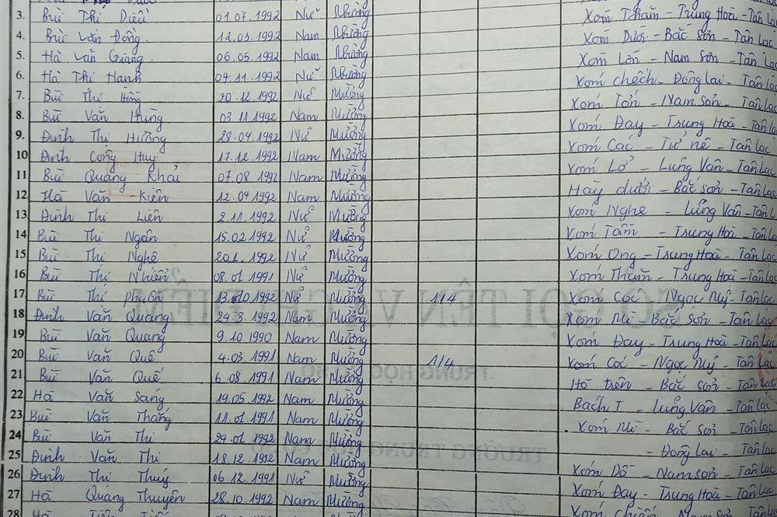 3. Bùi Thị Diều 01.07.1992 Nữ Mường Xóm Thăm - Trung Hoà - Tân Lạc
4. Bùi Văn Đồng 12.03.1992 Nam Mường Xóm Dưới - Bắc Sơn - Tân Lạc
5. Hà Văn Giang 06.05.1992 Nam Mường Xóm Lồn - Nam Sơn - Tân Lạc
6. Hà Thị Hạnh 04.11.1992 Nữ Mường Xóm Chếch - Đông Lai - Tân Lạc
7. Bùi Thị Hồng 20.12.1992 Nữ Mường Xóm Tớn - Nam Sơn - Tân Lạc
8. Bùi Văn Hùng 03.11.1992 Nam Mường Xóm Đay - Trung Hoà - Tân Lạc
9. Đinh Thị Hường 29.04.1992 Nữ Mường Xóm Các - Tử Nê - Tân Lạc
10 Đinh Công Huy 17.12.1992 Nam Mường Xóm Lở - Lũng Vân - Tân Lạc
11 Bùi Quang Khải 07.08.1992 Nam Mường Hày dưới - Bắc Sơn - Tân Lạc
12 Hà Văn Kiên 12.04.1992 Nam Mường Xóm Nghẹ - Lũng Vân - Tân Lạc
13 Đinh Thị Liên 2.11.1992 Nữ Mường Xóm Tam - Trung Hoà - Tân Lạc
14 Bùi Thị Ngân 15.02.1992 Nữ Mường Xóm Ong - Trung Hoà - Tân Lạc
15 Bùi Thị Nghệ 20.1.1992 Nữ Mường Xóm Thăm - Trung Hoà - Tân Lạc
16 Bùi Thị Nhiên 08.01.1991 Nữ Mường Xóm Cóc - Ngọc Mỹ - Tân Lạc
17 Bùi Thị 13.10.1992 Nữ Mường 1/4 Xóm Mi - Bắc Sơn - Tân Lạc
18 Đinh Văn Quang 24.3.1992 Nam Mường Xóm Đay - Trung Hoà - Tân Lạc
19 Bùi Văn Quang 9.10.1990 Nam Mường
20 Bùi Văn Quê 4.03.1991 Nam Mường 1/4 Xóm Cóc - Ngọc Mỹ - Tân Lạc
21 Bùi Văn Quế 6.08.1991 Nam Mường Hồ trên - Bắc Sơn - Tân Lạc
22 Hà Văn Sáng 19.05.1992 Nam Mường Bách T - Lũng Vân - Tân Lạc
23 Bùi Văn Thắng 11.01.1991 Nam Mường Xóm Mi - Bắc Sơn - Tân Lạc
24 Bùi Văn Thi 29.01.1992 Nam Mường - Đông Lai - Tân Lạc
25 Đinh Văn Thi 18.12.1992 Nam Mường
26 Đinh Thị Thuý 06.12.1991 Nữ Mường Xóm Dồ - Nam Sơn - Tân Lạc
27 Hà Quang Thuyên 28.10.1992 Nam Mường Xóm Đay - Trung Hoà - Tân Lạc
28 Hà Xóm Chiến - Nam Sơn - Tân Lạc